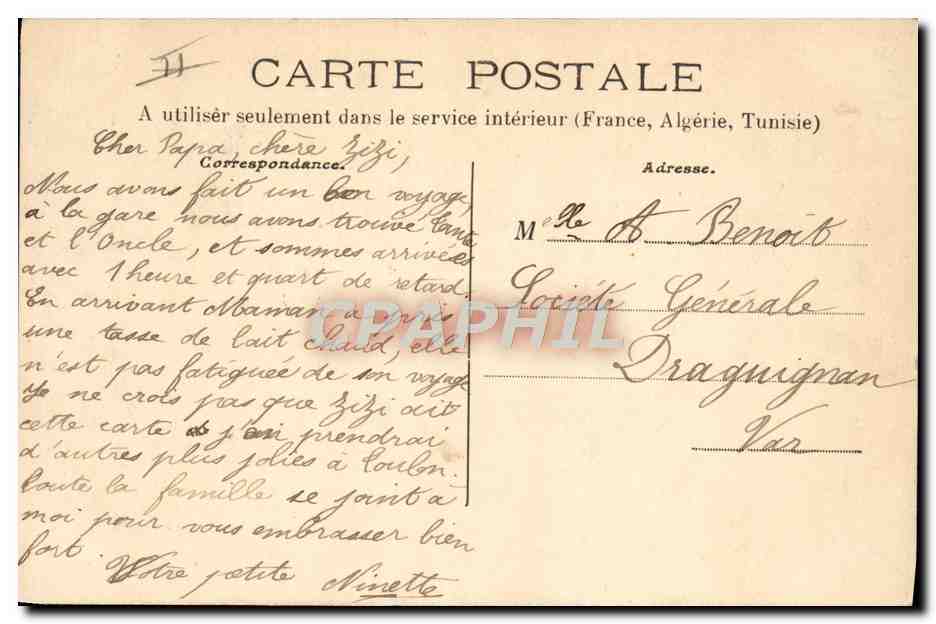 11
CARTE POSTALE
A utiliser seulement dans le service intérieur (France, Algérie, Tunisie)
Cher Papa, chère Zizi,
Correspondance.
Nous avons fait un bon voyage,
à la gare nous avons trouvé Tante
et l'Oncle, et sommes arrivées
avec 1 heure et quart de retard.
En arrivant Maman a pris
une tasse de lait chaud, elle
n'est pas fatiguée de son voyage
Je ne crois pas que Zizi ait
cette carte j'en prendrai
d'autres plus jolies à Toulon.
Toute la famille se joint à
moi pour vous embrasser bien
fort.
Votre petite Ninette
Adresse.
Mlle A Benoit
Société Générale
Draguignan
Var
CPAPHIL